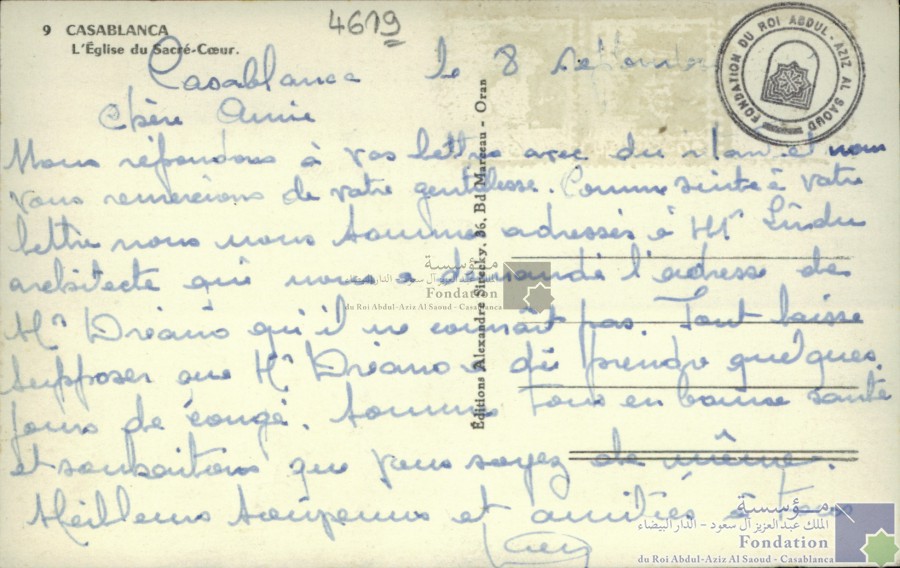 9 CASABLANCA
L'Église du Sacré-Cœur.
4619
FONDATION DU ROI ABDUL-AZIZ AL SAOUD
Casablanca le 8 septembre
Chère Amie
Nous répondons à vos lettres avec du et nous
vous remercions de votre gentillesse. Comme suite à votre
lettre nous nous somme adressés à Mr
architecte qui nous a demandé l'adresse de
Mr Dréano qu'il ne connait pas. Tout laisse
supposer que Mr Dréano a dû prendre quelques
jours de congé. Sommes tous en bonne santé
et souhaitons que vous soyez de même.
Meilleurs souvenirs et amitiés à tous
Éditions Alexandre Sirecky, 36, Bd Marceau - Oran
مؤسسة
الملك عبد العزيز آل سعود - الدار البيضاء
Fondation
du Roi Abdul-Aziz Al Saoud - Casablanca
مؤسسة
الملك عبد العزيز آل سعود - الدار البيضاء
Fondation
du Roi Abdul-Aziz Al Saoud - Casablanca